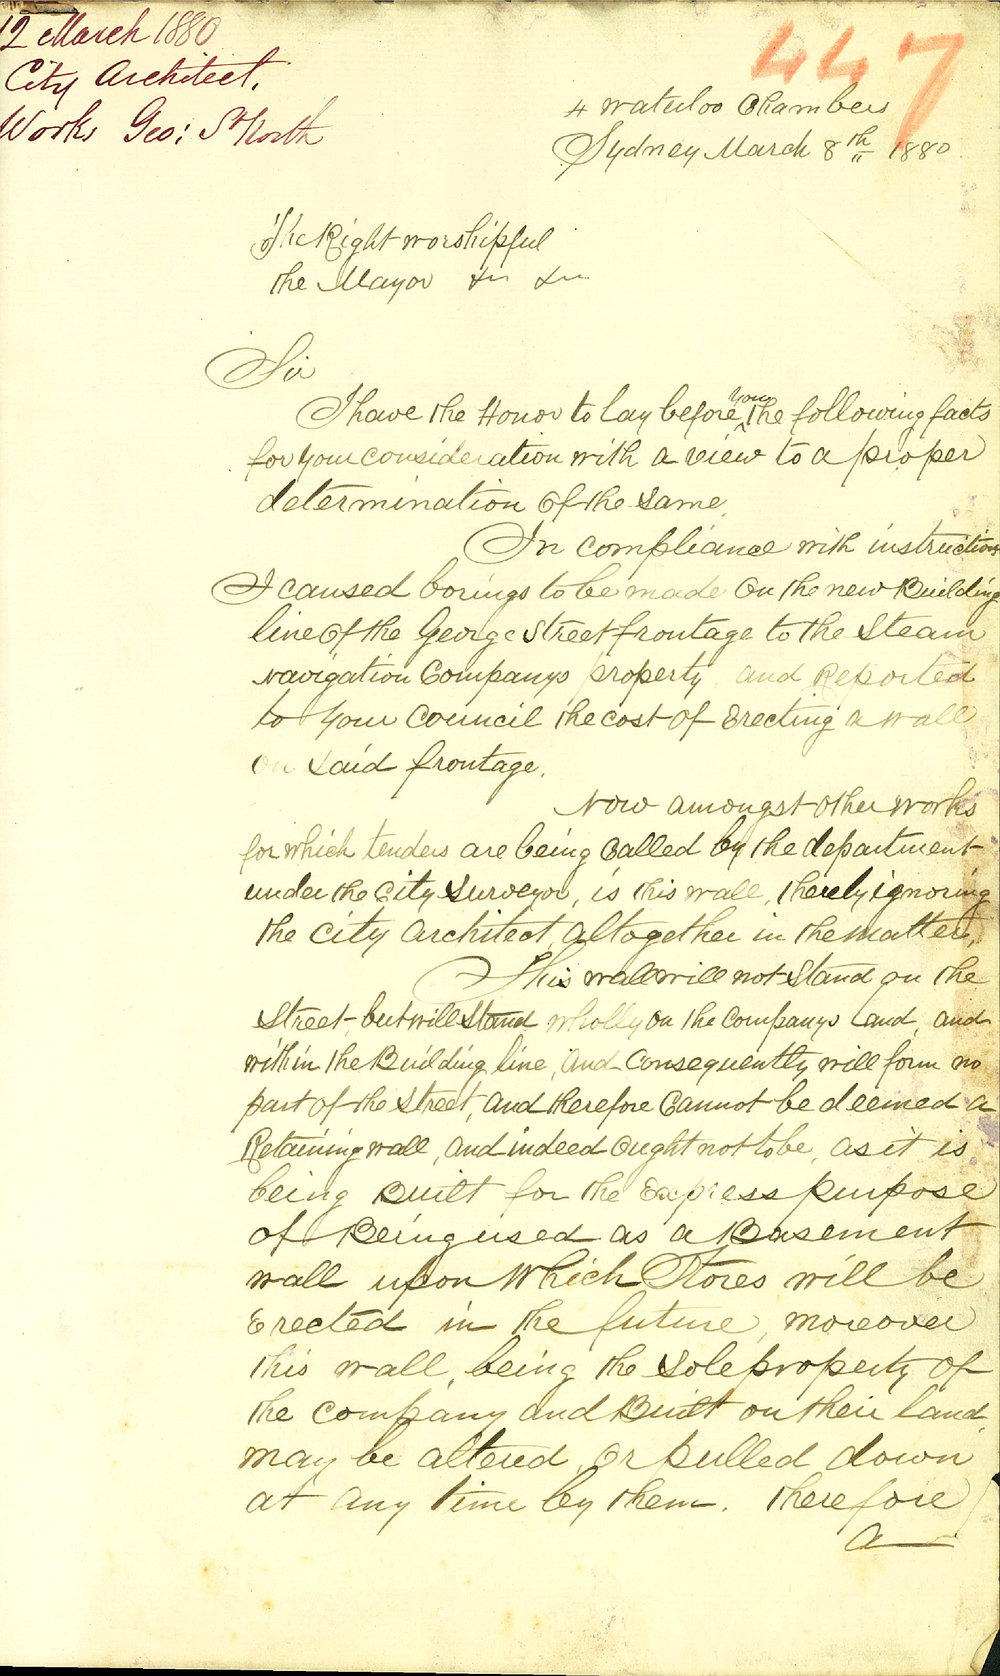 12 March 1880
City Architect.
Works Geo: St North
447
4 Waterloo Chambers
Sydney March 8th 1880
The Right worshipful
the Mayor &c &c
Sir
I have the Honor to lay before you the following facts
for your consideration with a view to a proper
determination of the same.
In compliance with instructions
I caused borings to be made on the new Building
line of the George Street frontage to the Steam
Navigation Companys property and Reported
to your Council the cost of Erecting a wall
on said frontage.
Now amongst other works
for which tenders are being called by the department
under the City Surveyor, is this wall, thereby ignoring
the City Architect altogether in the matter.
This wall will not stand on the
Street, but will stand wholly on the Companys Land, and
within the Building line, and consequently will form no
part of the Street, and therefore cannot be deemed a
Retaining wall, and indeed ought not to be, as it is
being Built for the Express purpose
of Being used as a Basement
wall upon which Stores will be
Erected in the future, moreover
this wall, being the sole property of
the company and Built on their land
may be altered, or pulled down
at any time by them. Therefore
a